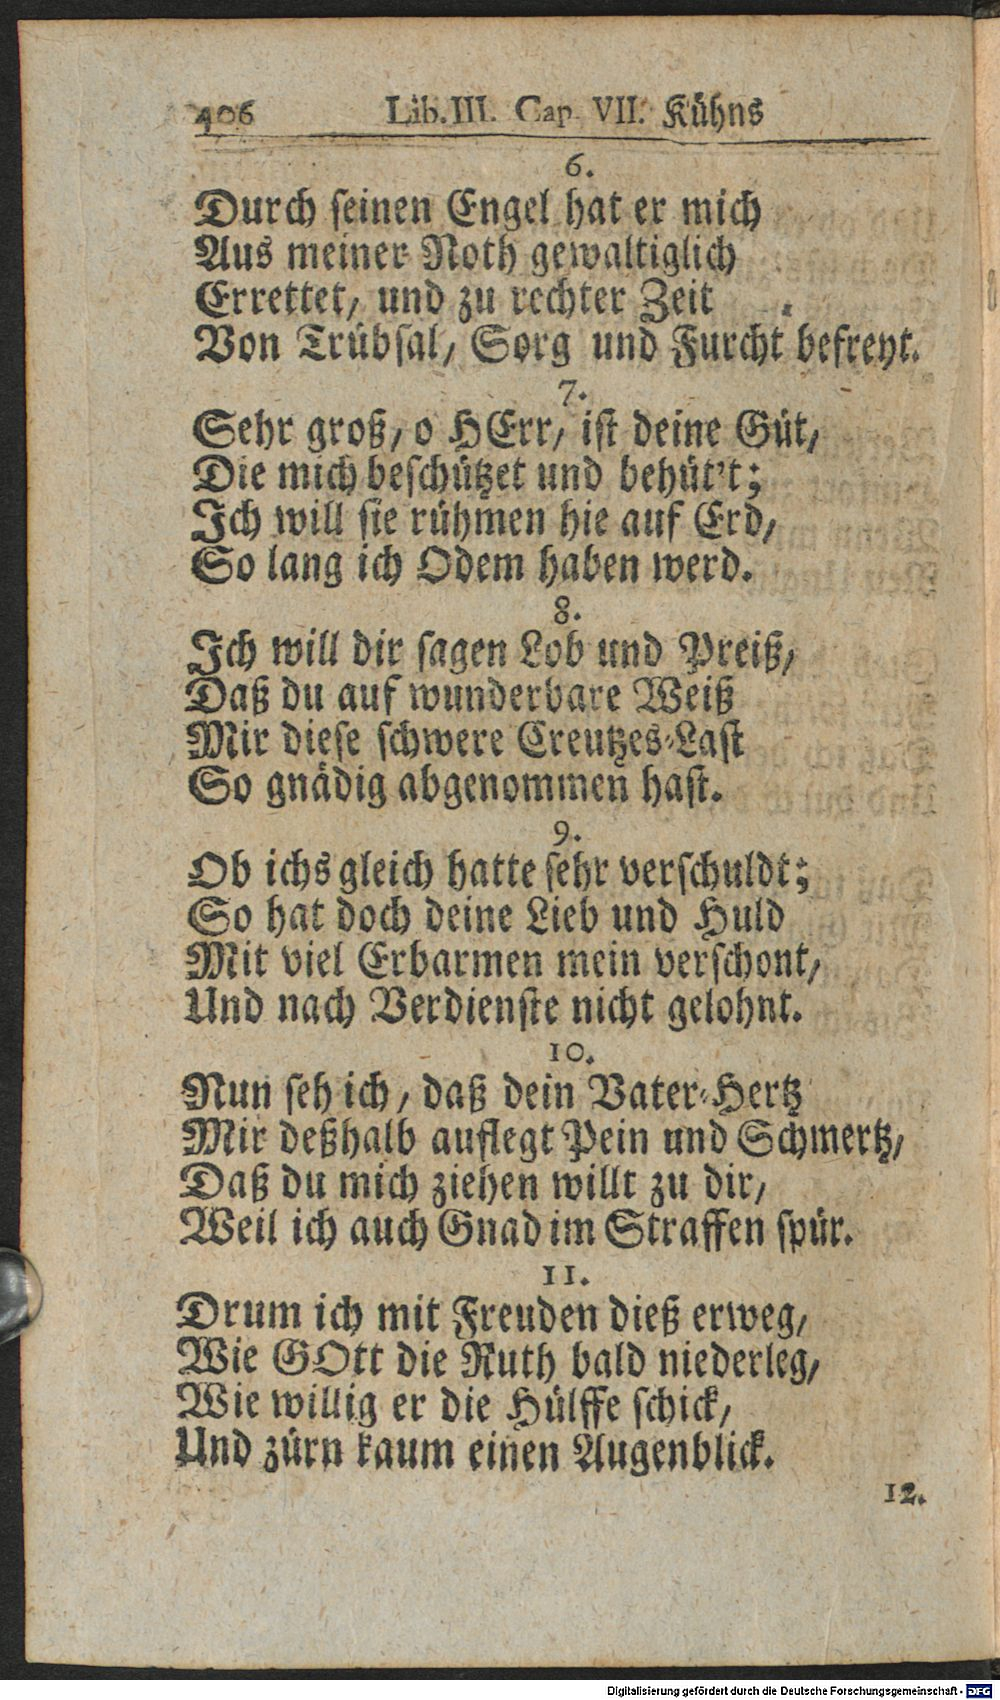 406 Lib. III. Cap. VII. Kühns
6.
Durch seinen Engel hat er mich
Aus meiner Noth gewaltiglich
Errettet, und zu rechter Zeit
Von Trübsal, Sorg und Furcht befreyt.
7.
Sehr groß, o HErr, ist deine Güt,
Die mich beschützet und behüt't;
Ich will sie rühmen hie auf Erd,
So lang ich Odem haben werd.
8.
Ich will dir sagen Lob und Preiß,
Daß du auf wunderbare Weiß
Mir diese schwere Creutzes-Last
So gnädig abgenommen hast.
9.
Ob ichs gleich hatte sehr verschuldt;
So hat doch deine Lieb und Huld
Mit viel Erbarmen mein verschont,
Und nach Verdienste nicht gelohnt.
10.
Nun seh ich, daß dein Vater-Hertz
Mir deßhalb auflegt Pein und Schmertz,
Daß du mich ziehen willt zu dir,
Weil ich auch Gnad im Straffen spür.
11.
Drum ich mit Freuden dieß erweg,
Wie GOtt die Ruth bald niederleg,
Wie willig er die Hülffe schick,
Und zürn kaum einen Augenblick.
12.
Digitalisierung gefördert durch die Deutsche Forschungsgemeinschaft - DFG